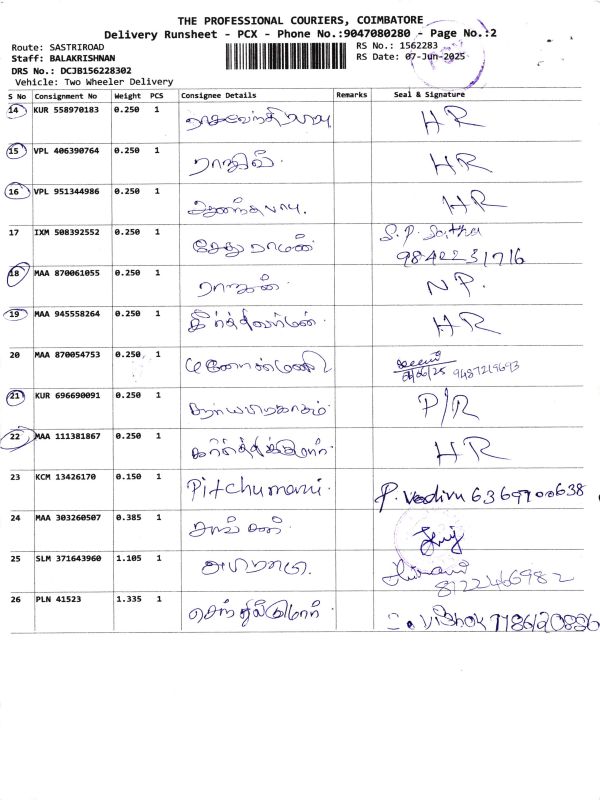 THE PROFESSIONAL COURIERS, COIMBATORE
Delivery Runsheet - PCX - Phone No.:9047080280 - Page No.:2
Route: SASTRIROAD
RS No.: 1562283
Staff: BALAKRISHNAN
RS Date: 07-Jun-2025
DRS No.: DCJB156228302
Vehicle: Two Wheeler Delivery
S No Consignment No Weight PCS Consignee Details Remarks Seal & Signature
14 KUR 558970183 0.250 1 HR
15 VPL 406390764 0.250 1 ராகுல். HR
16 VPL 951344986 0.250 1 HR
17 IXM 508392552 0.250 1 சேதுராமன் S.P. Saitha
9842231716
18 MAA 870061055 0.250 1 NP.
19 MAA 945558264 0.250 1 கீர்த்திவர்மன். HR
20 MAA 870054753 0.250 1 மனோன்மணி
07/06/25 9487219693
21 KUR 696690091 0.250 1 P/R
22 MAA 111381867 0.250 1 கார்த்திக்குமார். HR
23 KCM 13426170 0.150 1 Pitchumani. P. Vadivu 6369700638
24 MAA 303260507 0.385 1
25 SLM 371643960 1.105 1 8122466982
26 PLN 41523 1.335 1 செந்தில்குமார்.